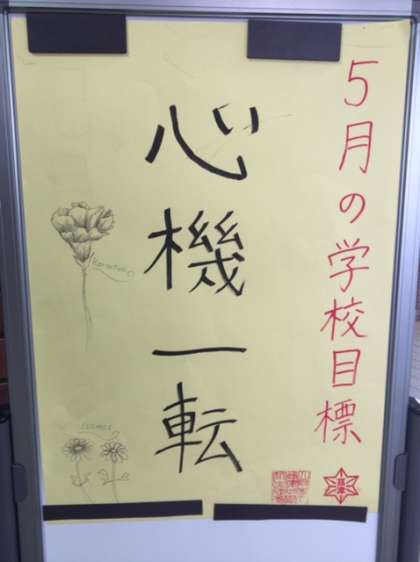 5月の学校目標
心機一転
cosmos